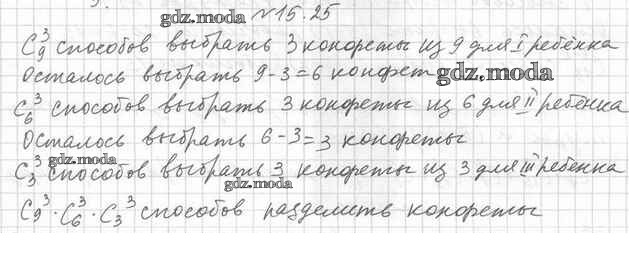 gdz.moda №15.25
C₉³ способов выбрать 3 конфеты из 9 для I ребёнка
Осталось выбрать 9-3=6 конфет gdz.moda
C₆³ способов выбрать 3 конфеты из 6 для II ребёнка
Осталось выбрать 6-3=3 конфеты
gdz.moda
C₃³ способов выбрать 3 конфеты из 3 для III ребенка
gdz.moda
C₉³·C₆³·C₃³ способов разделить конфеты